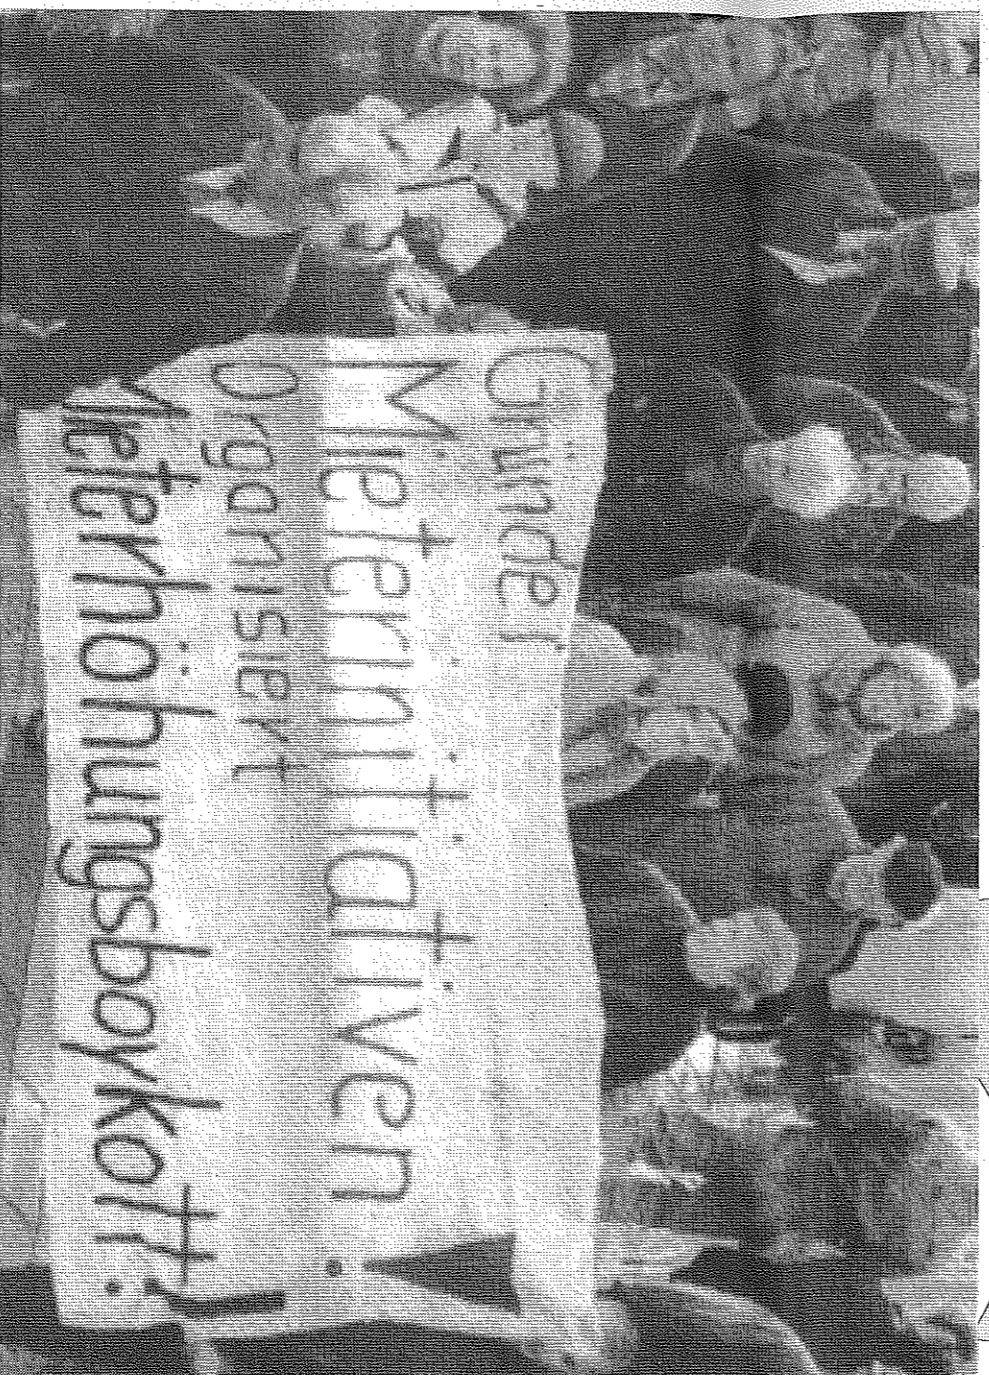 Gründet
Mieterinitiativen!
Organisiert
Mieterhöhungsboykott!